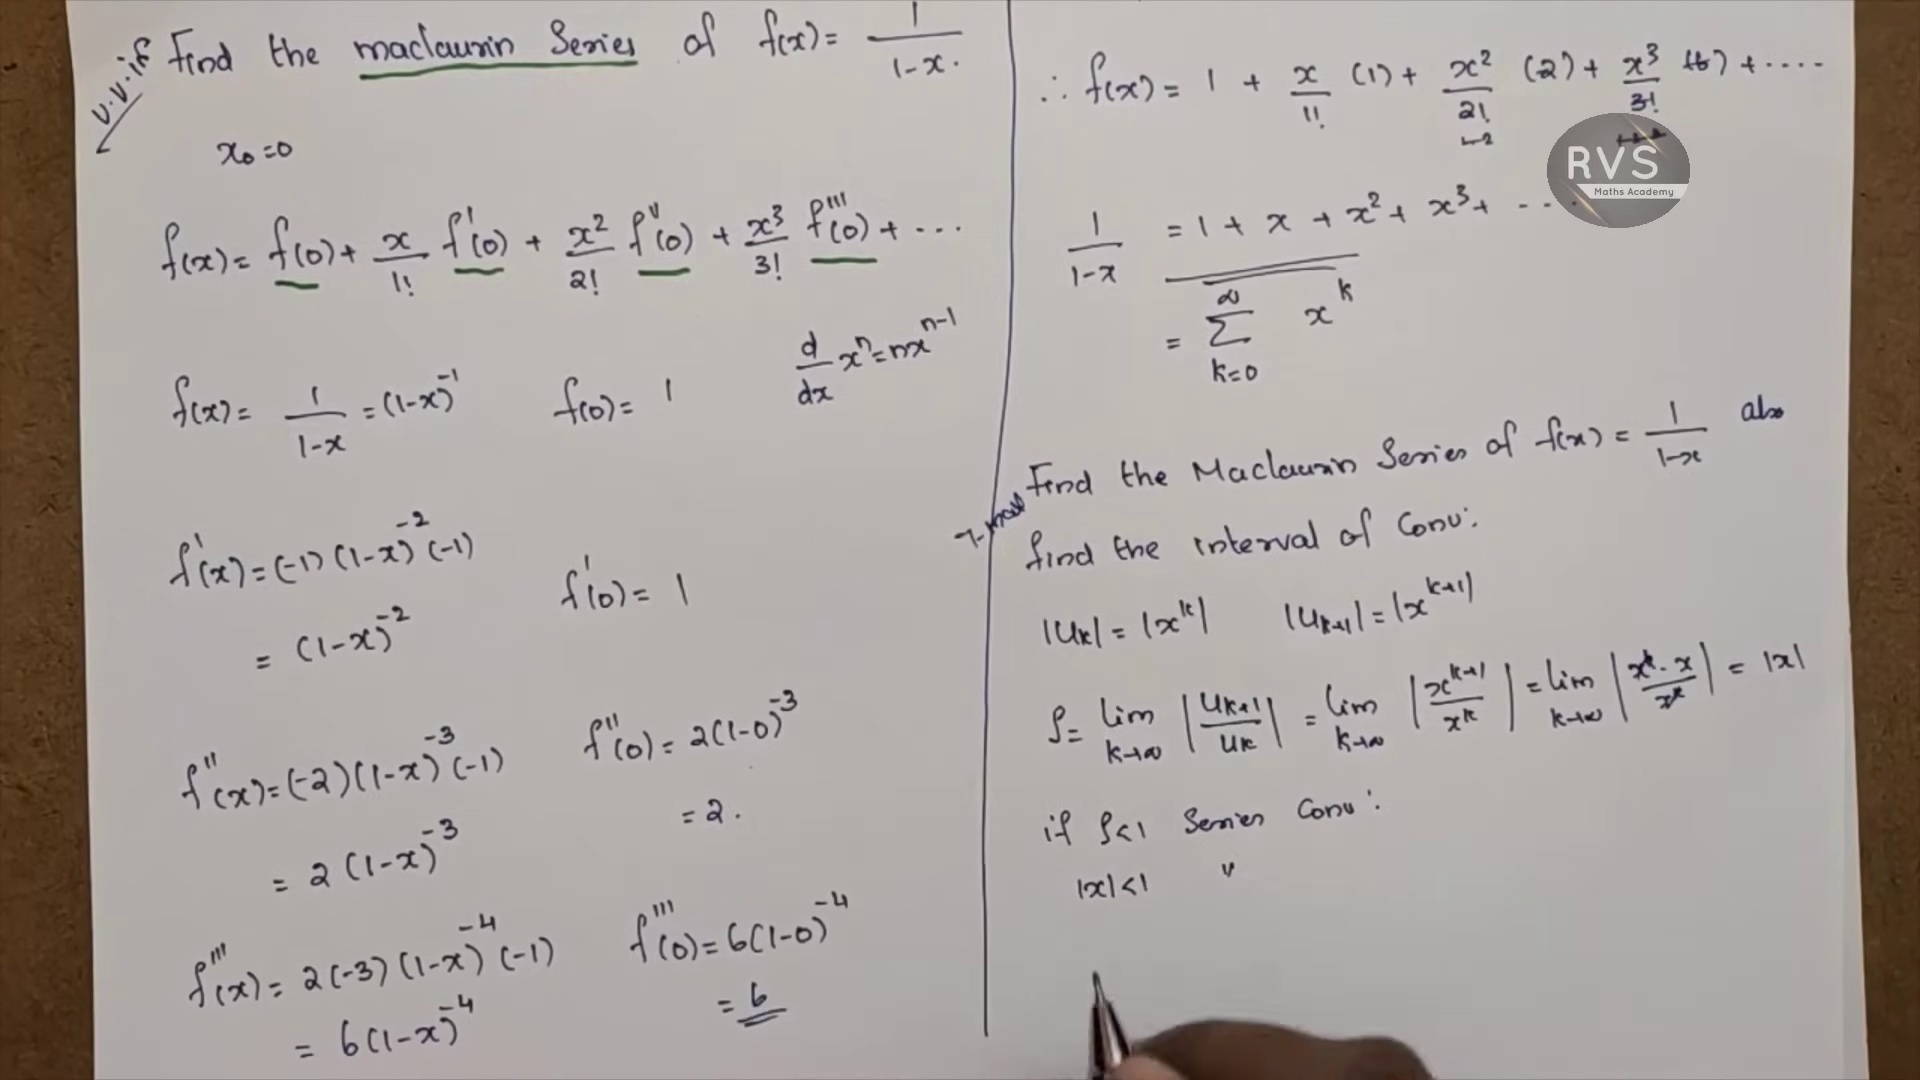 v.v.if Find the maclaurin Series of f(x) = 1/(1-x).
x₀=0
f(x) = f(0) + x/1! f'(0) + x²/2! f''(0) + x³/3! f'''(0) + ...
d/dx xⁿ = nxⁿ⁻¹
f(x) = 1/(1-x) = (1-x)⁻¹ f(0) = 1
f'(x) = (-1)(1-x)⁻²(-1)
= (1-x)⁻² f'(0) = 1
f''(x) = (-2)(1-x)⁻³(-1) f''(0) = 2(1-0)⁻³
= 2(1-x)⁻³ = 2.
f'''(x) = 2(-3)(1-x)⁻⁴(-1) f'''(0) = 6(1-0)⁻⁴
= 6(1-x)⁻⁴ = 6
∴ f(x) = 1 + x/1! (1) + x²/2! (2) + x³/3! (6) + ....
RVS
Maths Academy
1/(1-x) = 1 + x + x² + x³ + ...
= ∑_{k=0}^{∞} x^k
Find the Maclaurin Series of f(x) = 1/(1-x) also
find the interval of Conv:
|u_k| = |x^k| |u_{k+1}| = |x^{k+1}|
ρ = lim_{k→∞} |u_{k+1}/u_k| = lim_{k→∞} |x^{k+1}/x^k| = lim_{k→∞} |x^k · x/x^k| = |x|
if ρ<1 Series Conv:
|x|<1 "